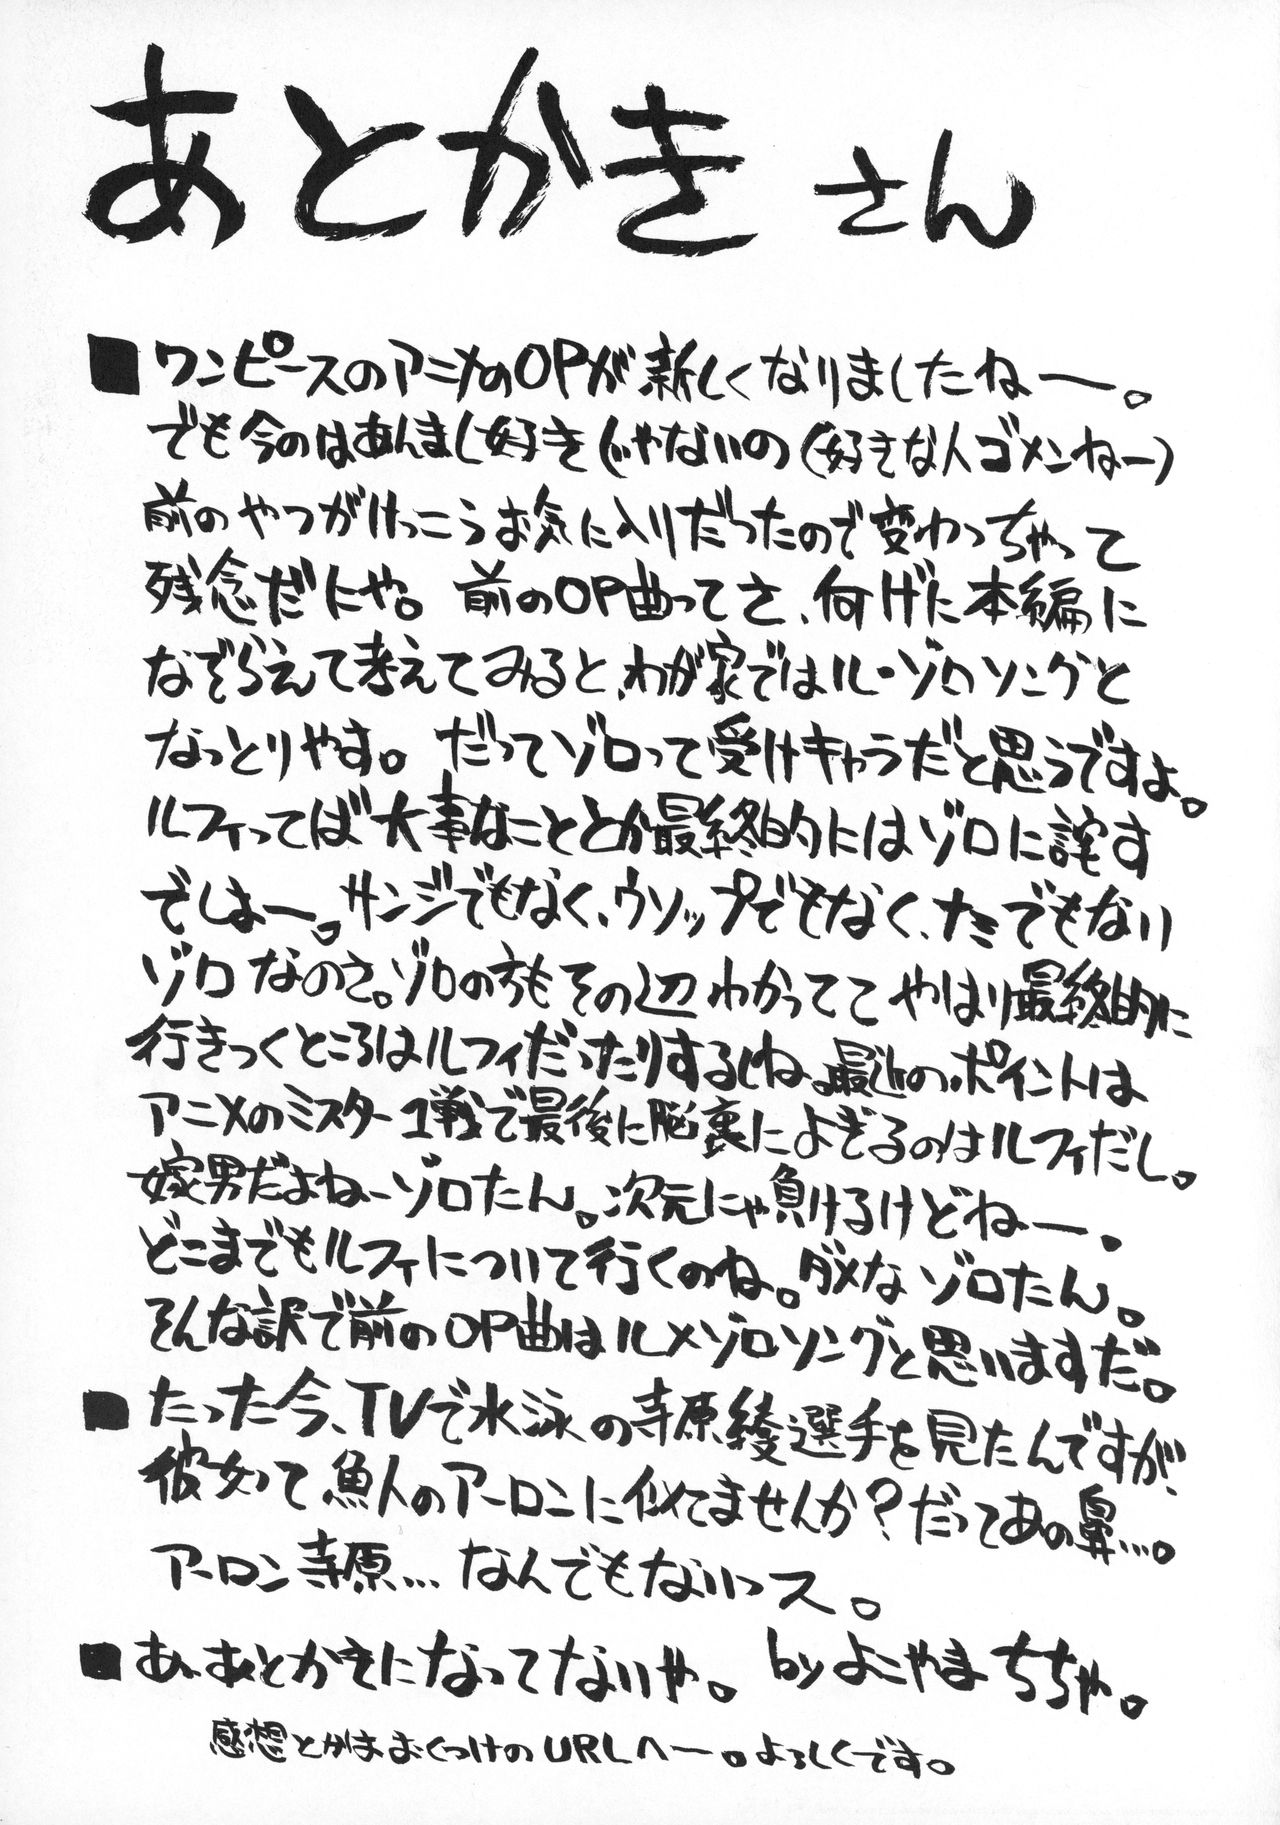 あとかきさん
■ワンピースのアニメのOPが新しくなりましたねー。
でも今のはあんまし好きじゃないの(好きな人ゴメンねー)
前のやつがけっこうお気に入りだったので変わっちゃって
残念だにゃ。前のOP曲ってさ、何げに本編に
なぞらえて考えてみると、わが家ではル・ゾロソングと
なっとりやす。だってゾロって受けキャラだと思うですよ。
ルフィってば大事なこととか最終的にはゾロに託す
でしょー。サンジでもなく、ウソップでもなく、ナミでもない
ゾロなのさ。ゾロの方もその辺わかってて やはり最終的に
行きつくところはルフィだったりするしね。最近のポイントは
アニメのミスター1戦で最後に脳裏によぎるのはルフィだし。
嫁男だよねーゾロたん。次元にゃ負けるけどねー。
どこまでもルフィについて行くのね。ダメなゾロたん。
そんな訳で前のOP曲はルメゾロソングと思いますだ。
■たった今、TVで水泳の寺原綾選手を見たんですが、
彼女って魚人のアーロンに似てませんか?だってあの鼻…。
アーロン寺原… なんでもないっス。
■あ、あとかきになってないや。 byよこやまちちゃ。
感想とかはおくつけのURLへー。よろしくです。